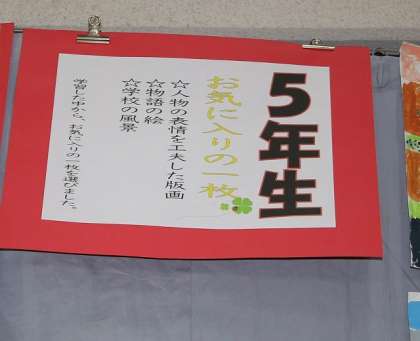 ５年生
お気に入りの一枚
☆人物の表情を工夫した版画
☆物語の絵
☆学校の風景
学習した中から、お気に入りの一枚を選びました。